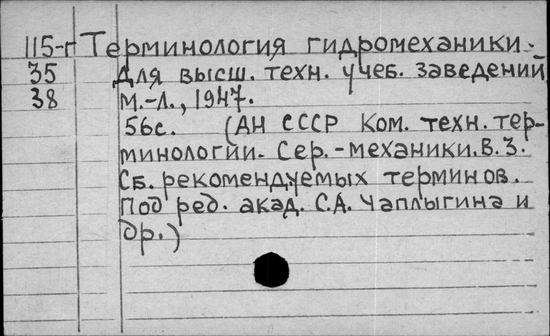 115-г Терминология гидромеханики.
35 Для высш. техн. учеб. заведений
38 М.-Л., 1947.
56с. (АН СССР Ком. техн. тер-
минологии. Сер.-механики. В. 3.
Сб. рекомендуемых терминов.
Под ред. акад. С.А. Чаплыгина и
др.)